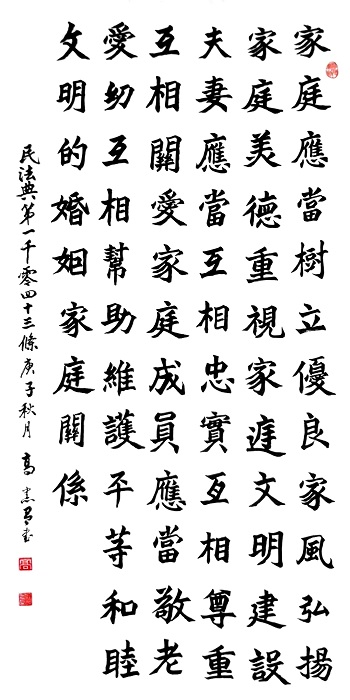 家庭應當樹立優良家風弘揚
家庭美德重視家庭文明建設
夫妻應當互相忠實互相尊重
互相關愛家庭成員應當敬老
愛幼互相幫助維護平等和睦
文明的婚姻家庭關係
民法典第一千零四十三條庚子秋月高